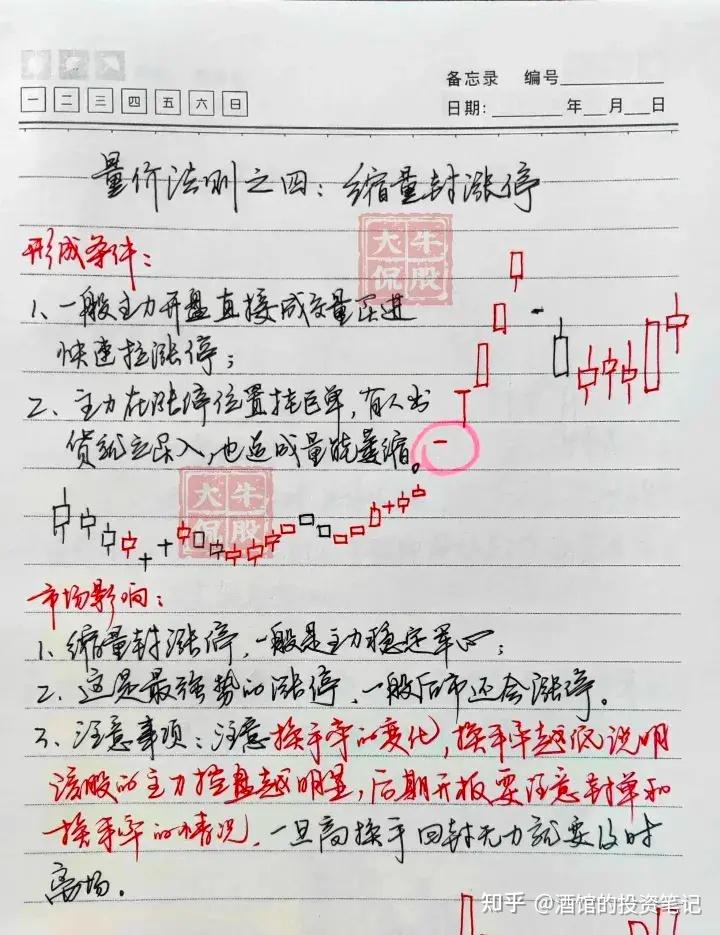 备忘录 编号
一 二 三 四 五 六 日
日期： 年 月 日
量价法则之四：缩量封涨停
大牛
侃股
形成条件：
1、一般主力开盘直接成交量压进
快速拉涨停；
2、主力在涨停位置挂巨单，有人出
货就立刻买入，也造成量能萎缩。
大牛
侃股
市场影响：
1、缩量封涨停，一般是主力稳定军心；
2、这是最强势的涨停，一般后市还会涨停。
3、注意事项：注意换手率的变化，换手率越低说明
该股的主力控盘越明显，后期开板要注意封单和
换手率的情况，一旦高换手回封无力就要及时
离场。
知乎 @酒馆的投资笔记